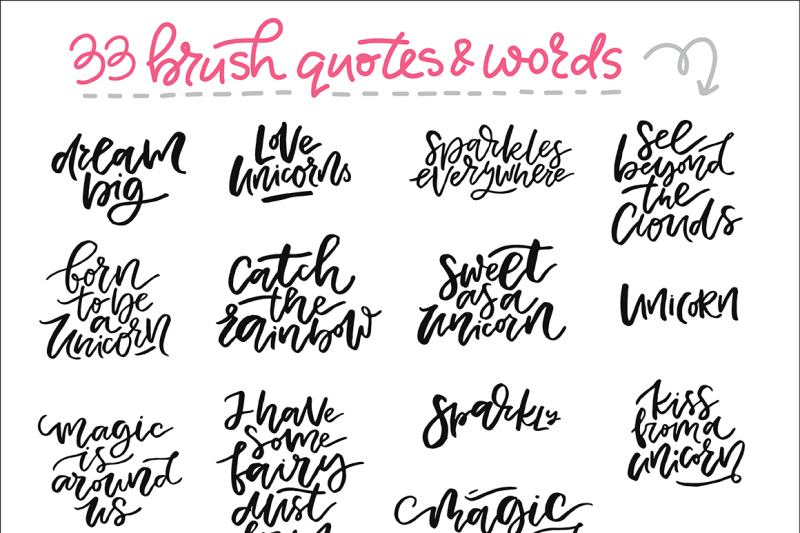 33 brush quotes & words
dream
big
Love
Unicorns
sparkles
everywhere
see
beyond
the
Clouds
born
to be
a
Unicorn
Catch
the
rainbow
sweet
as a
unicorn
Unicorn
magic
is
around
us
I have
some
fairy
dust
Sparkly
magic
kiss
from a
unicorn